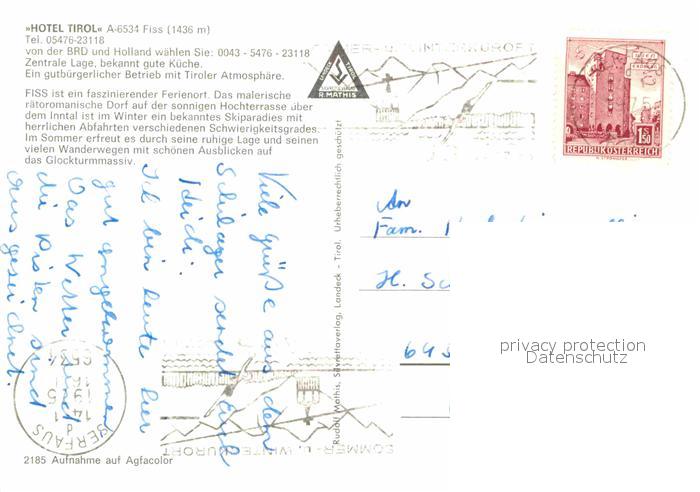 »HOTEL TIROL« A-6534 Fiss (1436 m)
Tel. 05476-23118
von der BRD und Holland wählen Sie: 0043 - 5476 - 23118
Zentrale Lage, bekannt gute Küche.
Ein gutbürgerlicher Betrieb mit Tiroler Atmosphäre.
FISS ist ein faszinierender Ferienort. Das malerische
rätoromanische Dorf auf der sonnigen Hochterrasse über
dem Inntal ist im Winter ein bekanntes Skiparadies mit
herrlichen Abfahrten verschiedenen Schwierigkeitsgrades.
Im Sommer erfreut es durch seine ruhige Lage und seinen
vielen Wanderwegen mit schönen Ausblicken auf
das Glockturmmassiv.
Viele Grüße aus dem
sendet Euch
Heidi.
Ich bin heute hier
gut angekommen
Das Wetter und
die Pisten sind
ausgezeichnet.
R. MATHIS
Rudolf Mathis, Silvrettaverlag, Landeck - Tirol. Urheberrechtlich geschützt
1.50
REPUBLIK ÖSTERREICH
An
Fam.
H. Sc
645
privacy protection
Datenschutz
SOMMER- U. WINTERKURORT
6534
2185 Aufnahme auf Agfacolor